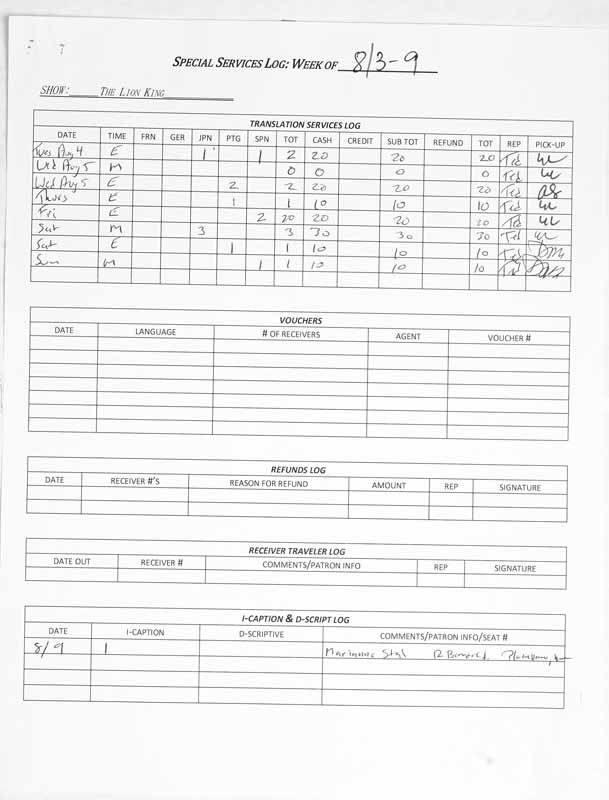 SPECIAL SERVICES LOG: WEEK OF 8/3-9
SHOW: THE LION KING
TRANSLATION SERVICES LOG
DATE TIME FRN GER JPN PTG SPN TOT CASH CREDIT SUB TOT REFUND TOT REP PICK-UP
Tues Aug 4 E 1 1 2 20 20 20 Ted
Wed Aug 5 M 0 0 0 0 Ted
Wed Aug 5 E 2 2 20 20 20 Ted
Thurs E 1 1 10 10 10 Ted
Fri E 2 20 20 20 20 Ted
Sat M 3 3 30 30 30 Ted
Sat E 1 1 10 10 10 Ted
Sun M 1 1 10 10 10 Ted
VOUCHERS
DATE LANGUAGE # OF RECEIVERS AGENT VOUCHER #
REFUNDS LOG
DATE RECEIVER #'S REASON FOR REFUND AMOUNT REP SIGNATURE
RECEIVER TRAVELER LOG
DATE OUT RECEIVER # COMMENTS/PATRON INFO REP SIGNATURE
I-CAPTION & D-SCRIPT LOG
DATE I-CAPTION D-SCRIPTIVE COMMENTS/PATRON INFO/SEAT #
8/9 1 Marianne